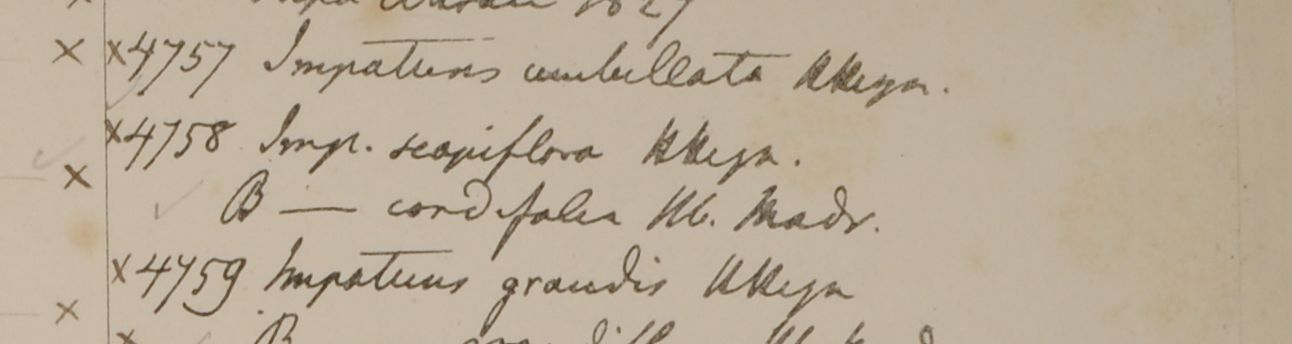 1827
× ×4757 Impatiens umbellata HHeyn.
×4758 Imp. scapiflora HHeyn.
× B — cordifolia Hb. Madr.
×4759 Impatiens grandis HHeyn
× B